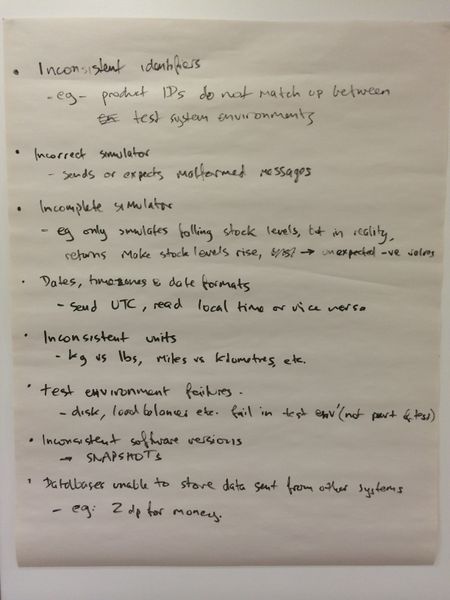 • Inconsistent identifiers
- eg - product IDs do not match up between
test system environments
• Incorrect simulator
- sends or expects malformed messages
• Incomplete simulator
- eg only simulates falling stock levels, but in reality,
returns make stock levels rise, → unexpected -ve values
• Dates, timezones & date formats
- send UTC, read local time or vice versa
• Inconsistent units
- kg vs lbs, miles vs kilometres, etc.
• Test environment failures.
- disk, load balancer etc. fail in test env' (not part of test)
• Inconsistent software versions
→ SNAPSHOTS
• Databases unable to store data sent from other systems
- eg: 2 dp for money.